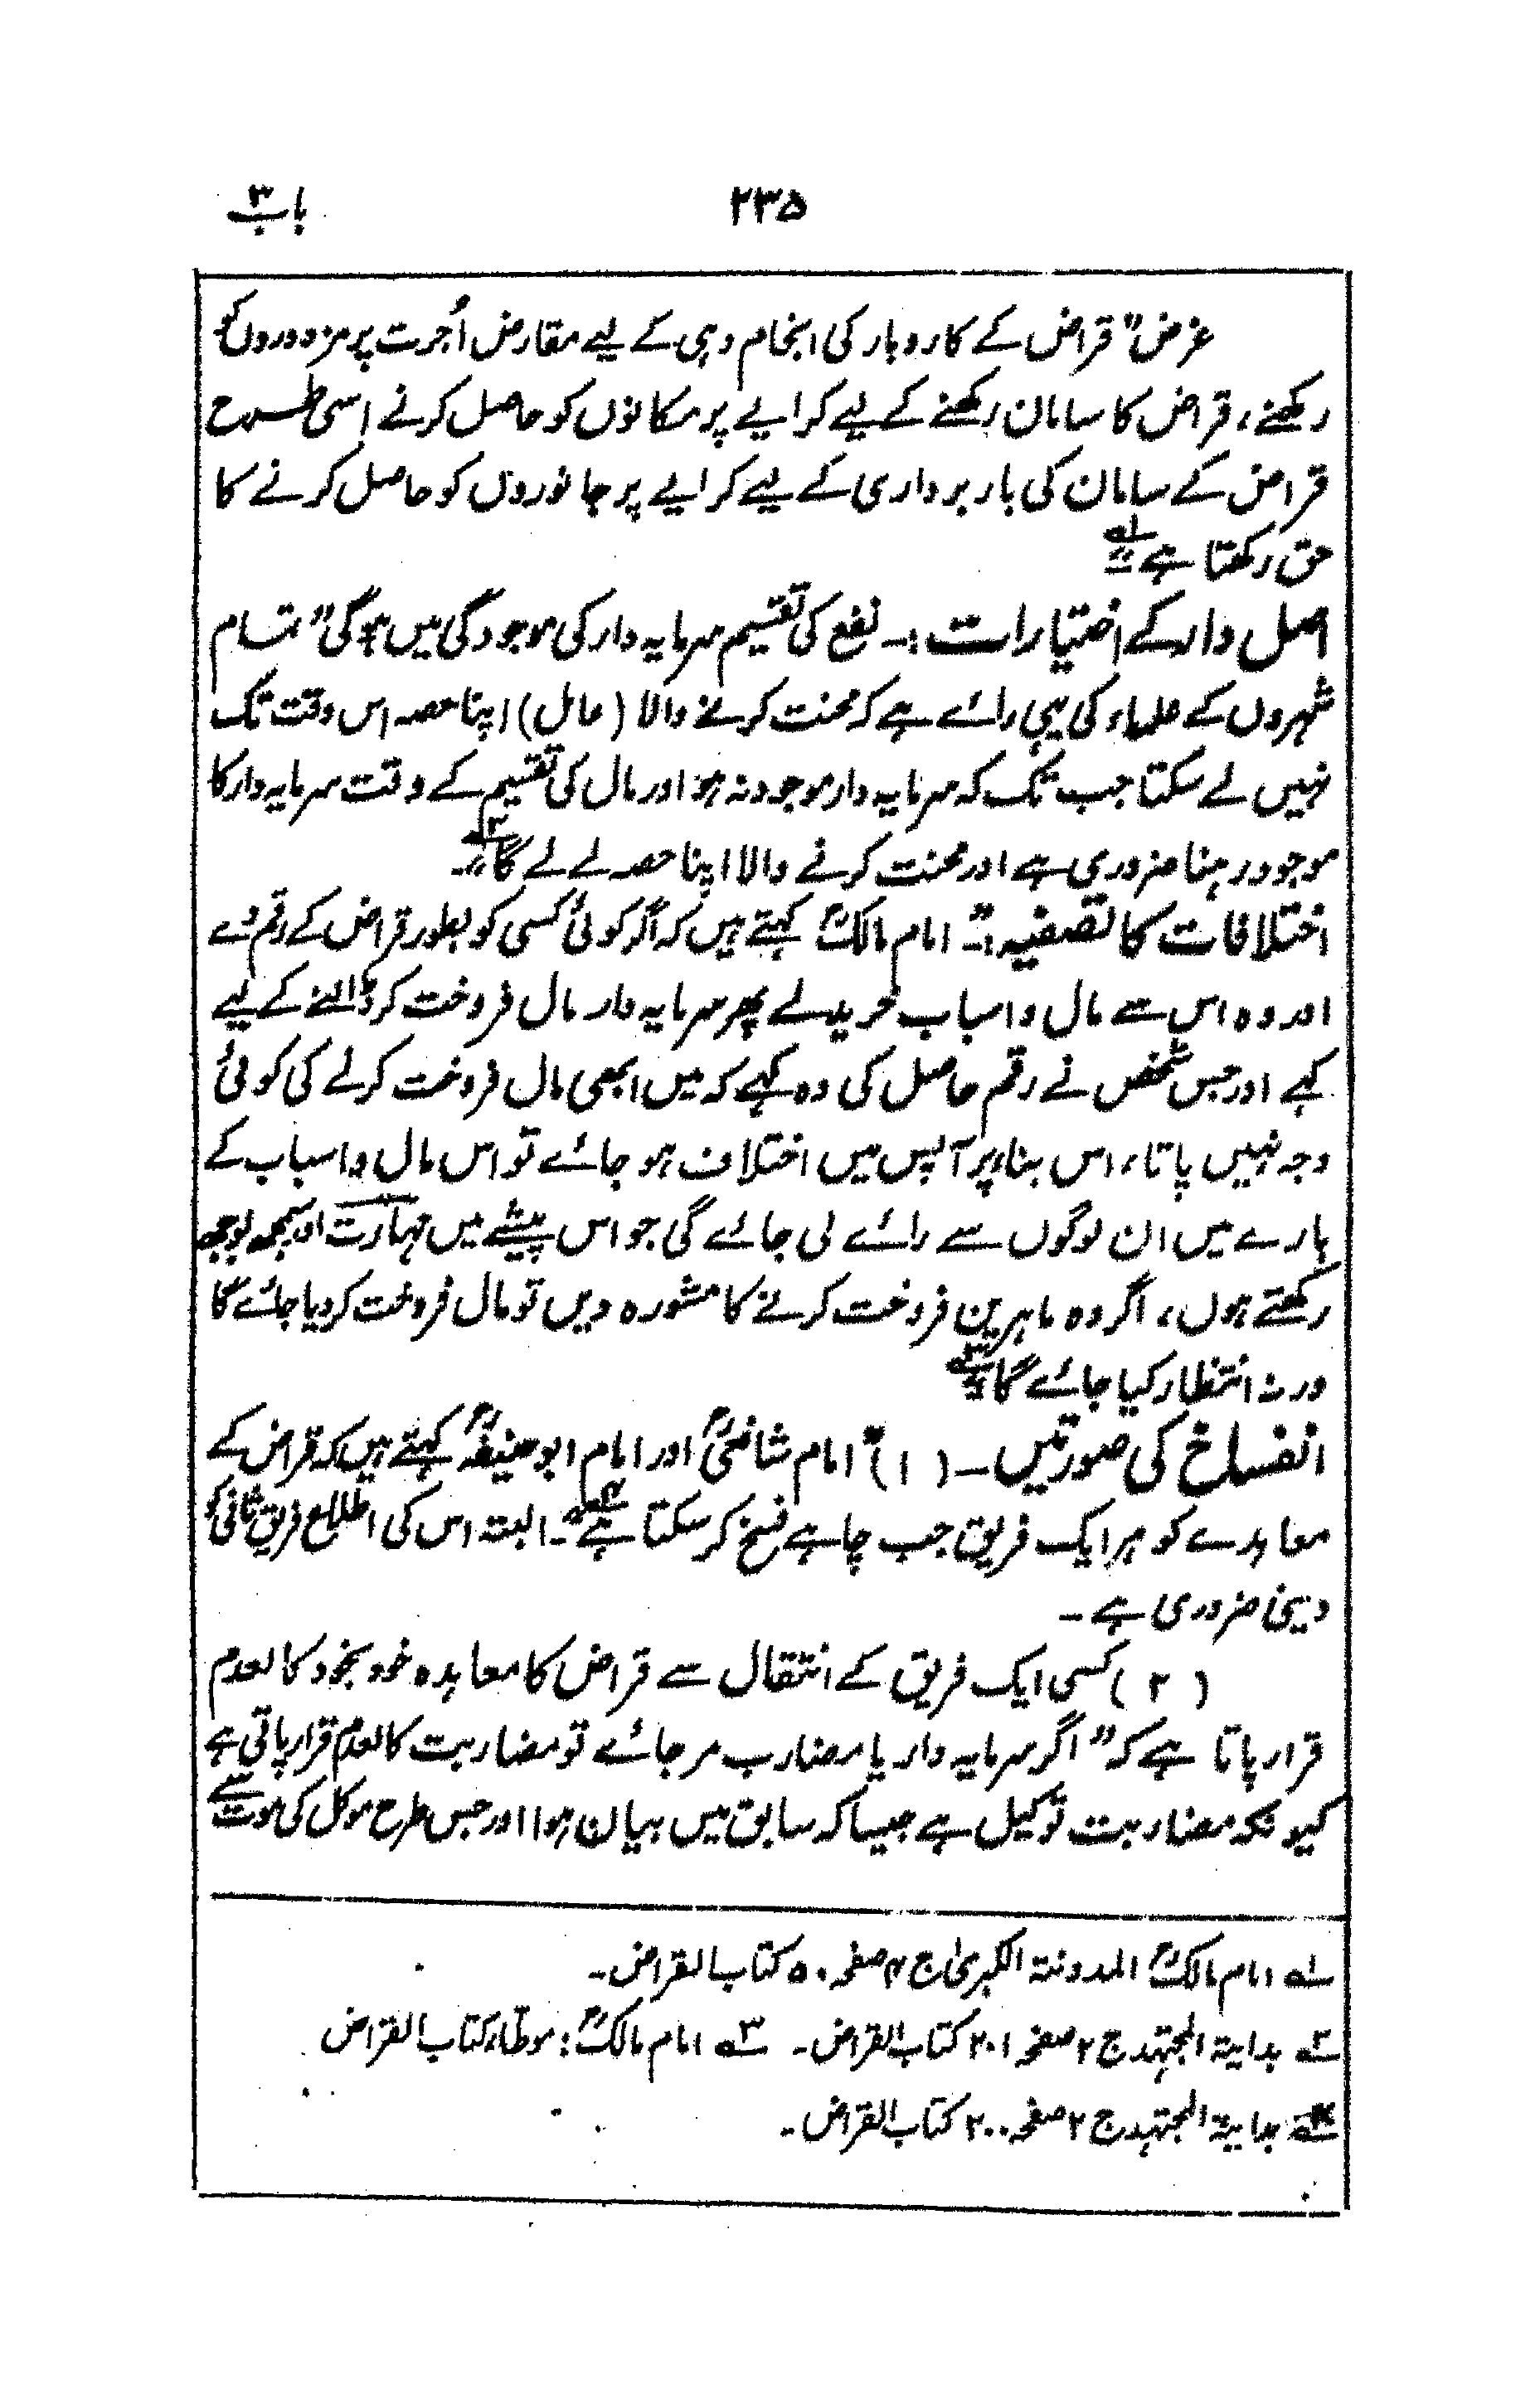 باب ۳
۲۳۵
غرض "قراض کے کاروبار کی انجام دہی کے لیے مقارض اُجرت پر مزدوروں کو
رکھنے، قراض کا سامان رکھنے کے لیے کرایے پر مکانوں کو حاصل کرنے اسی طرح
قراض کے سامان کی باربرداری کے لیے کرایے پر جانوروں کو حاصل کرنے کا
حق رکھتا ہے"۱؎
اصل دار کے اختیارات:۔ نفع کی تقسیم سرمایہ دار کی موجودگی میں ہوگی "تمام
شہروں کے علماء کی یہی رائے ہے کہ محنت کرنے والا (عامل) اپنا حصہ اس وقت تک
نہیں لے سکتا جب تک کہ سرمایہ دار موجود نہ ہو اور مال کی تقسیم کے وقت سرمایہ دار کا
موجود رہنا ضروری ہے اور محنت کرنے والا اپنا حصہ لے لے گا"۲؎۔
اختلافات کا تصفیہ:۔ "امام مالکؒ کہتے ہیں کہ اگر کوئی کسی کو بطور قراض کے رقم دے
اور وہ اس سے مال و اسباب خریدلے پھر سرمایہ دار مال فروخت کر ڈالنے کے لیے
کہے اور جس شخص نے رقم حاصل کی وہ کہے کہ میں ابھی مال فروخت کرنے کی کوئی
وجہ نہیں پاتا، اس بناء پر آپس میں اختلاف ہو جائے تو اس مال و اسباب کے
بارے میں ان لوگوں سے رائے لی جائے گی جو اس پیشے میں مہارت اور سمجھ بوجھ
رکھتے ہوں، اگر وہ ماہرین فروخت کرنے کا مشورہ دیں تو مال فروخت کر دیا جائے گا
ورنہ انتظار کیا جائے گا"۳؎
انفساخ کی صورتیں۔ (۱) "امام شافعیؒ اور امام ابوحنیفہؒ کہتے ہیں کہ قراض کے
معاہدے کو ہر ایک فریق جب چاہے فسخ کر سکتا ہے"۴؎۔ البتہ اس کی اطلاع فریق ثانی کو
دینی ضروری ہے۔
(۲) کسی ایک فریق کے انتقال سے قراض کا معاہدہ خود بخود کالعدم
قرار پاتا ہے کہ "اگر سرمایہ دار یا مضارب مرجائے تو مضاربت کالعدم قرار پاتی ہے
کیونکہ مضاربت توکیل ہے جیسا کہ سابق میں بیان ہوا اور جس طرح موکل کی موت سے
۱؎ امام مالکؒ المدونۃ الکبریٰ ج ۴ صفحہ ۵۰ کتاب القراض۔
۲؎ بدایۃ المجتہد ج ۲ صفحہ ۲۰۱ کتاب القراض۔ ۳؎ امام مالکؒ: موطاء کتاب القراض
۴؎ بدایۃ المجتہد ج ۲ صفحہ ۲۰۰ کتاب القراض۔